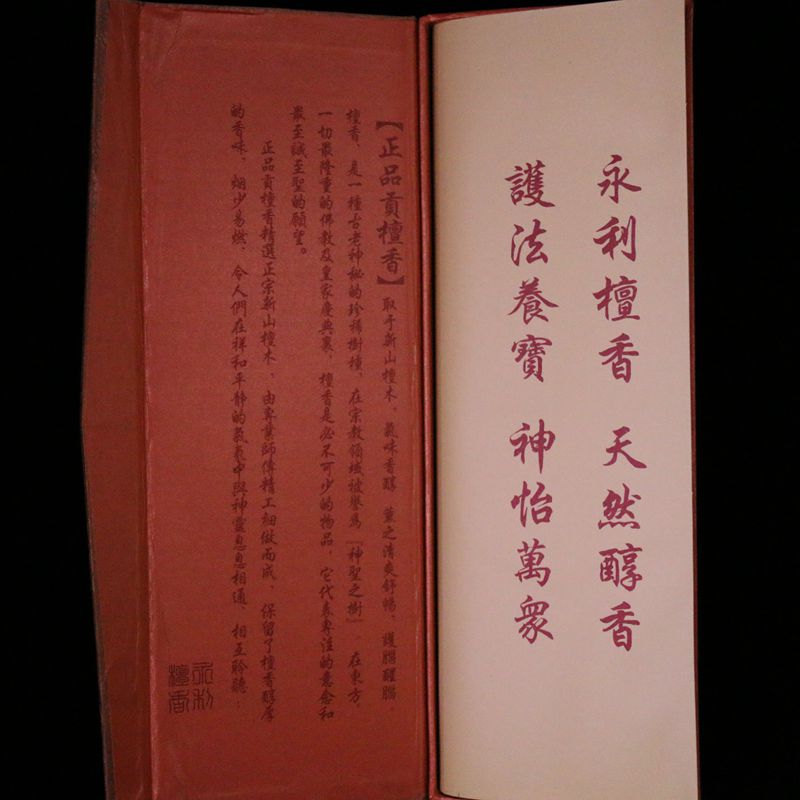 永利檀香 天然醇香
護法養寶 神怡萬眾
【正品貢檀香】取于新山檀木，氣味香醇，薰之清爽舒暢，護腦醒腦，
檀香，是一種古老神秘的珍稀樹種，在宗教領域被譽爲「神聖之樹」在東方，
一切最隆重的佛教及皇家慶典裏，檀香是必不可少的物品，它代表專注的意念和
最至誠至聖的願望。
正品貢檀香精選正宗新山檀木，由專業師傅精工細做而成，保留了檀香醇厚
的香味，烟少易燃，令人們在祥和平靜的氣氛中與神靈息息相通，相互聆聽；
永利
檀香